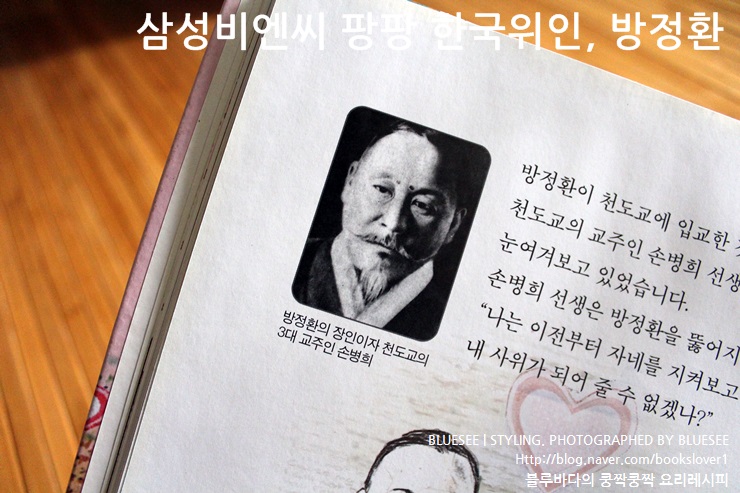 삼성비엔씨 팡팡 한국위인, 방정환
방정환이 천도교에 입교한
천도교의 교주인 손병희 선생
눈여겨보고 있었습니다.
손병희 선생은 방정환을 뚫어지
“나는 이전부터 자네를 지켜보고
내 사위가 되어 줄 수 없겠나?”
방정환의 장인이자 천도교의
3대 교주인 손병희
BLUESEE | STYLING, PHOTOGRAPHED BY BLUESEE
Http://blog.naver.com/bookslover1
블루바다의 쿵짝쿵짝 요리레시피